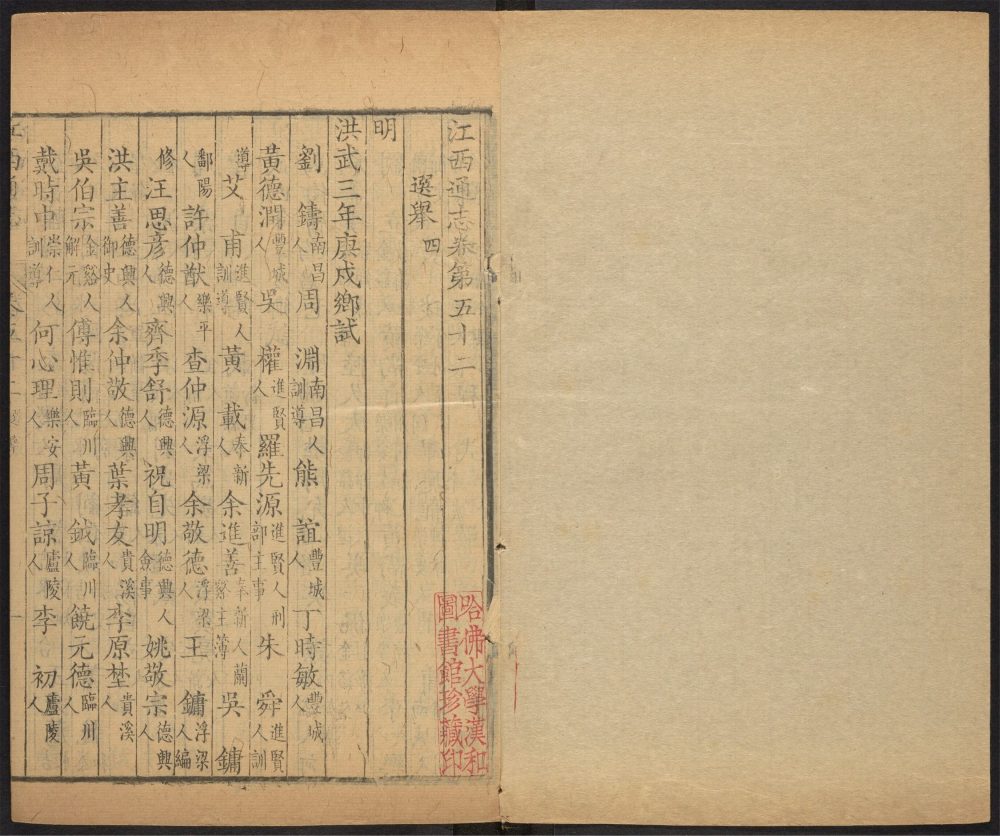 江西通志卷第五十二
選舉四
明
洪武三年庚戌鄉試
劉鑄南昌人周淵南昌人訓導熊誼豐城人丁時敏豐城人
黃德潤豐城人吳權進賢人羅先源進賢人刑部主事朱舜進賢人訓
導艾甫進賢人訓導黃載奉新人余進善奉新人蘭谿主簿吳鏞
鄱陽人許仲猷樂平人查仲源浮梁人余敬德浮梁人王鏞浮梁人編
修汪思彥德興人齊季舒德興人祝自明德興人僉事姚敬宗德興人
洪主善德興人御史余仲敬德興人葉孝友貴溪人李原埜貴溪人
吳伯宗金谿人解元傅惟則臨川人黃鉞臨川人饒元德臨川人
戴時中崇仁人訓導何心理樂安人周子諒廬陵人李初廬陵人
哈佛大學漢和
圖書館珍藏印